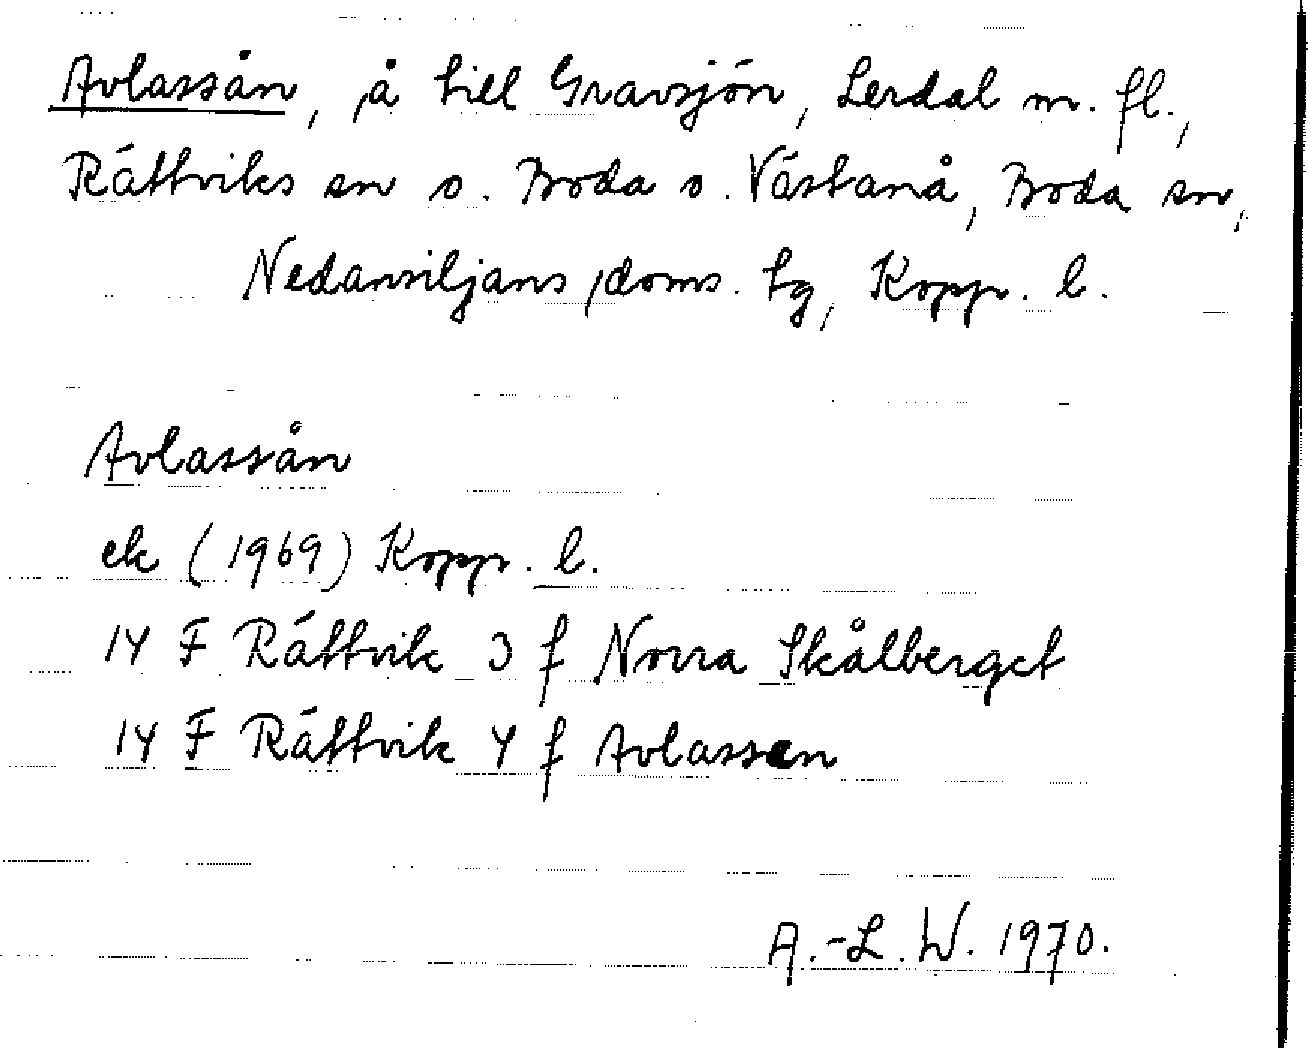 Avlassån, å till Gravsjön, Lerdal m. fl.,
Rättviks sn o. Boda o. Västanå, Boda sn,
Nedansiljans doms. tg, Kopp. l.
Avlassån
ek (1969) Kopp. l.
14 F Rättvik 3 f Norra Skålberget
14 F Rättvik 4 f Avlassen
A.-L. W. 1970.